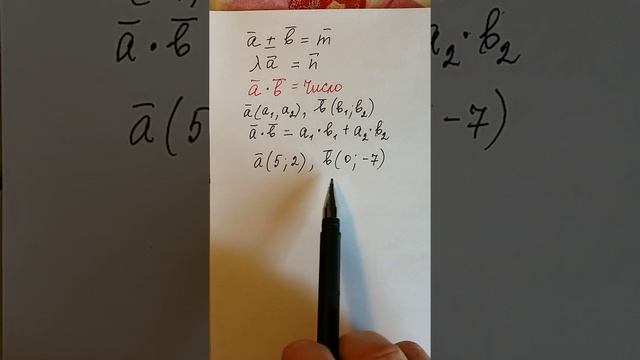 a̅ ± b̅ = m̅
λa̅ = n̅
a̅ · b̅ = число
a̅(a₁, a₂), b̅(b₁; b₂)
a̅ · b̅ = a₁ · b₁ + a₂ · b₂
a̅(5; 2), b̅(0; -7)